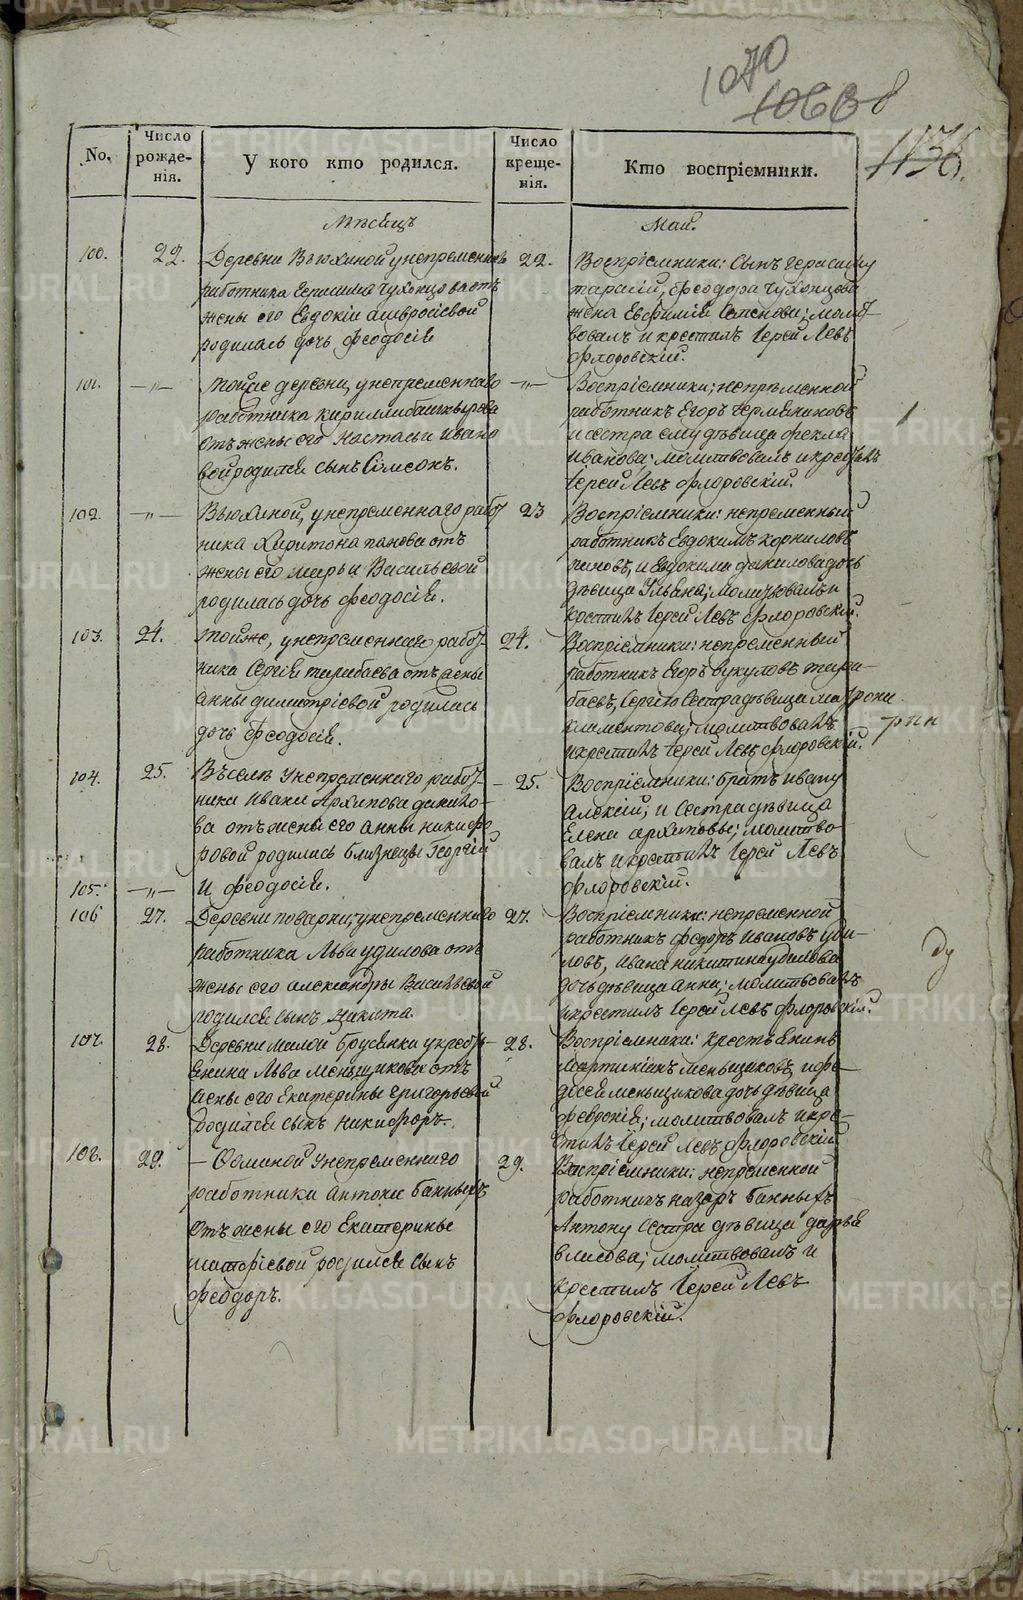 1070
1066
8
1136.
No.
Число рожде-нія.
У кого кто родился.
Число креще-нія.
Кто воспріемники.
Мѣсяцъ
Маій.
100.
22.
Деревни Вьюхиной у непременнаго
работника Герасима Чухонцова отъ
жены его Евдокіи Амвросіевой
родилась дочь Феодосія
22.
Воспріемники: сынъ Герасиму
Тарасій, Феодора Чухонцова
жена Евфимія Семенова; молит-
вовалъ и крестилъ Іерей Левъ
Флоровскій.
101.
—„—
Тойже деревни, у непременнаго
работника Кирилла Башкырова
отъ жены его Настасьи Ивано
вой родился сынъ Сімеонъ.
—„—
Воспріемники; непременной
работникъ Егоръ
и сестра ему дѣвица Фекла
Иванова; молитвовалъ и крестилъ
Іерей Левъ Флоровскій.
1
102.
—„—
Вьюхиной, у непременнаго работ
ника Харитона Панова отъ
жены его Марьи Васильевой
родилась дочь Феодосія.
23
Воспріемники: непременный
работникъ Евдокимъ Корниловъ
Пановъ, и Евдокима Данилова дочь
дѣвица Ульяна; молитвовалъ и
крестилъ Іерей Левъ Флоровскій.
103.
24.
Тойже, у непременнаго работ-
ника Сергія Тарабаева отъ жены
Анны Димитріевой родилась
дочь Феодосія.
24.
Воспріемники: непременный
работникъ Егоръ Вукуловъ Тара-
баевъ, Сергію сестра дѣвица Матрона
Климентова; молитвовалъ
и крестилъ Іерей Левъ Флоровскій.
104.
25.
Въ селѣ у непременнаго работ-
ника Ивана Архипова Данило-
ва отъ жены его Анны Никифо
ровой родилась близнецы Георгій
105.
—„—
и Феодосія.
25.
Воспріемники: братъ Ивану
Алексій, и сестра дѣвица
Елена Архиповы; молитво-
валъ и крестилъ Іерей Левъ
Флоровскій.
106
27.
Деревни Поварни, у непременнаго
работника Льва Удилова отъ
жены его Александры Васильевой
родился сынъ Никита.
27.
Воспріемники: непременной
работникъ Федоръ Ивановъ Уди-
ловъ, Ивана Никитина Удилова
дочь дѣвица Анна; молитвовалъ
и крестилъ Іерей Левъ Флоровскій.
107.
28.
Деревни Малой Брусянки у крестья-
янина Льва Меньщикова отъ
жены его Екатерины Григорьевой
родился сынъ Никифоръ.
28.
Воспріемники: крестьянинъ
Мартиніанъ Меньщиковъ,
Меньщикова дочь дѣвица
Февронія; молитвовалъ и кре-
стилъ Іерей Левъ Флоровскій
108.
29.
у непременнаго
работника Антона Банныхъ
отъ жены его Екатерины
родился сынъ
Феодоръ.
29.
Воспріемники: непременной
работникъ Назаръ Банныхъ
Антону сестра дѣвица Дарья
молитвовалъ и
крестилъ Іерей Левъ
Флоровскій.
METRIKI.GASO-URAL.RU